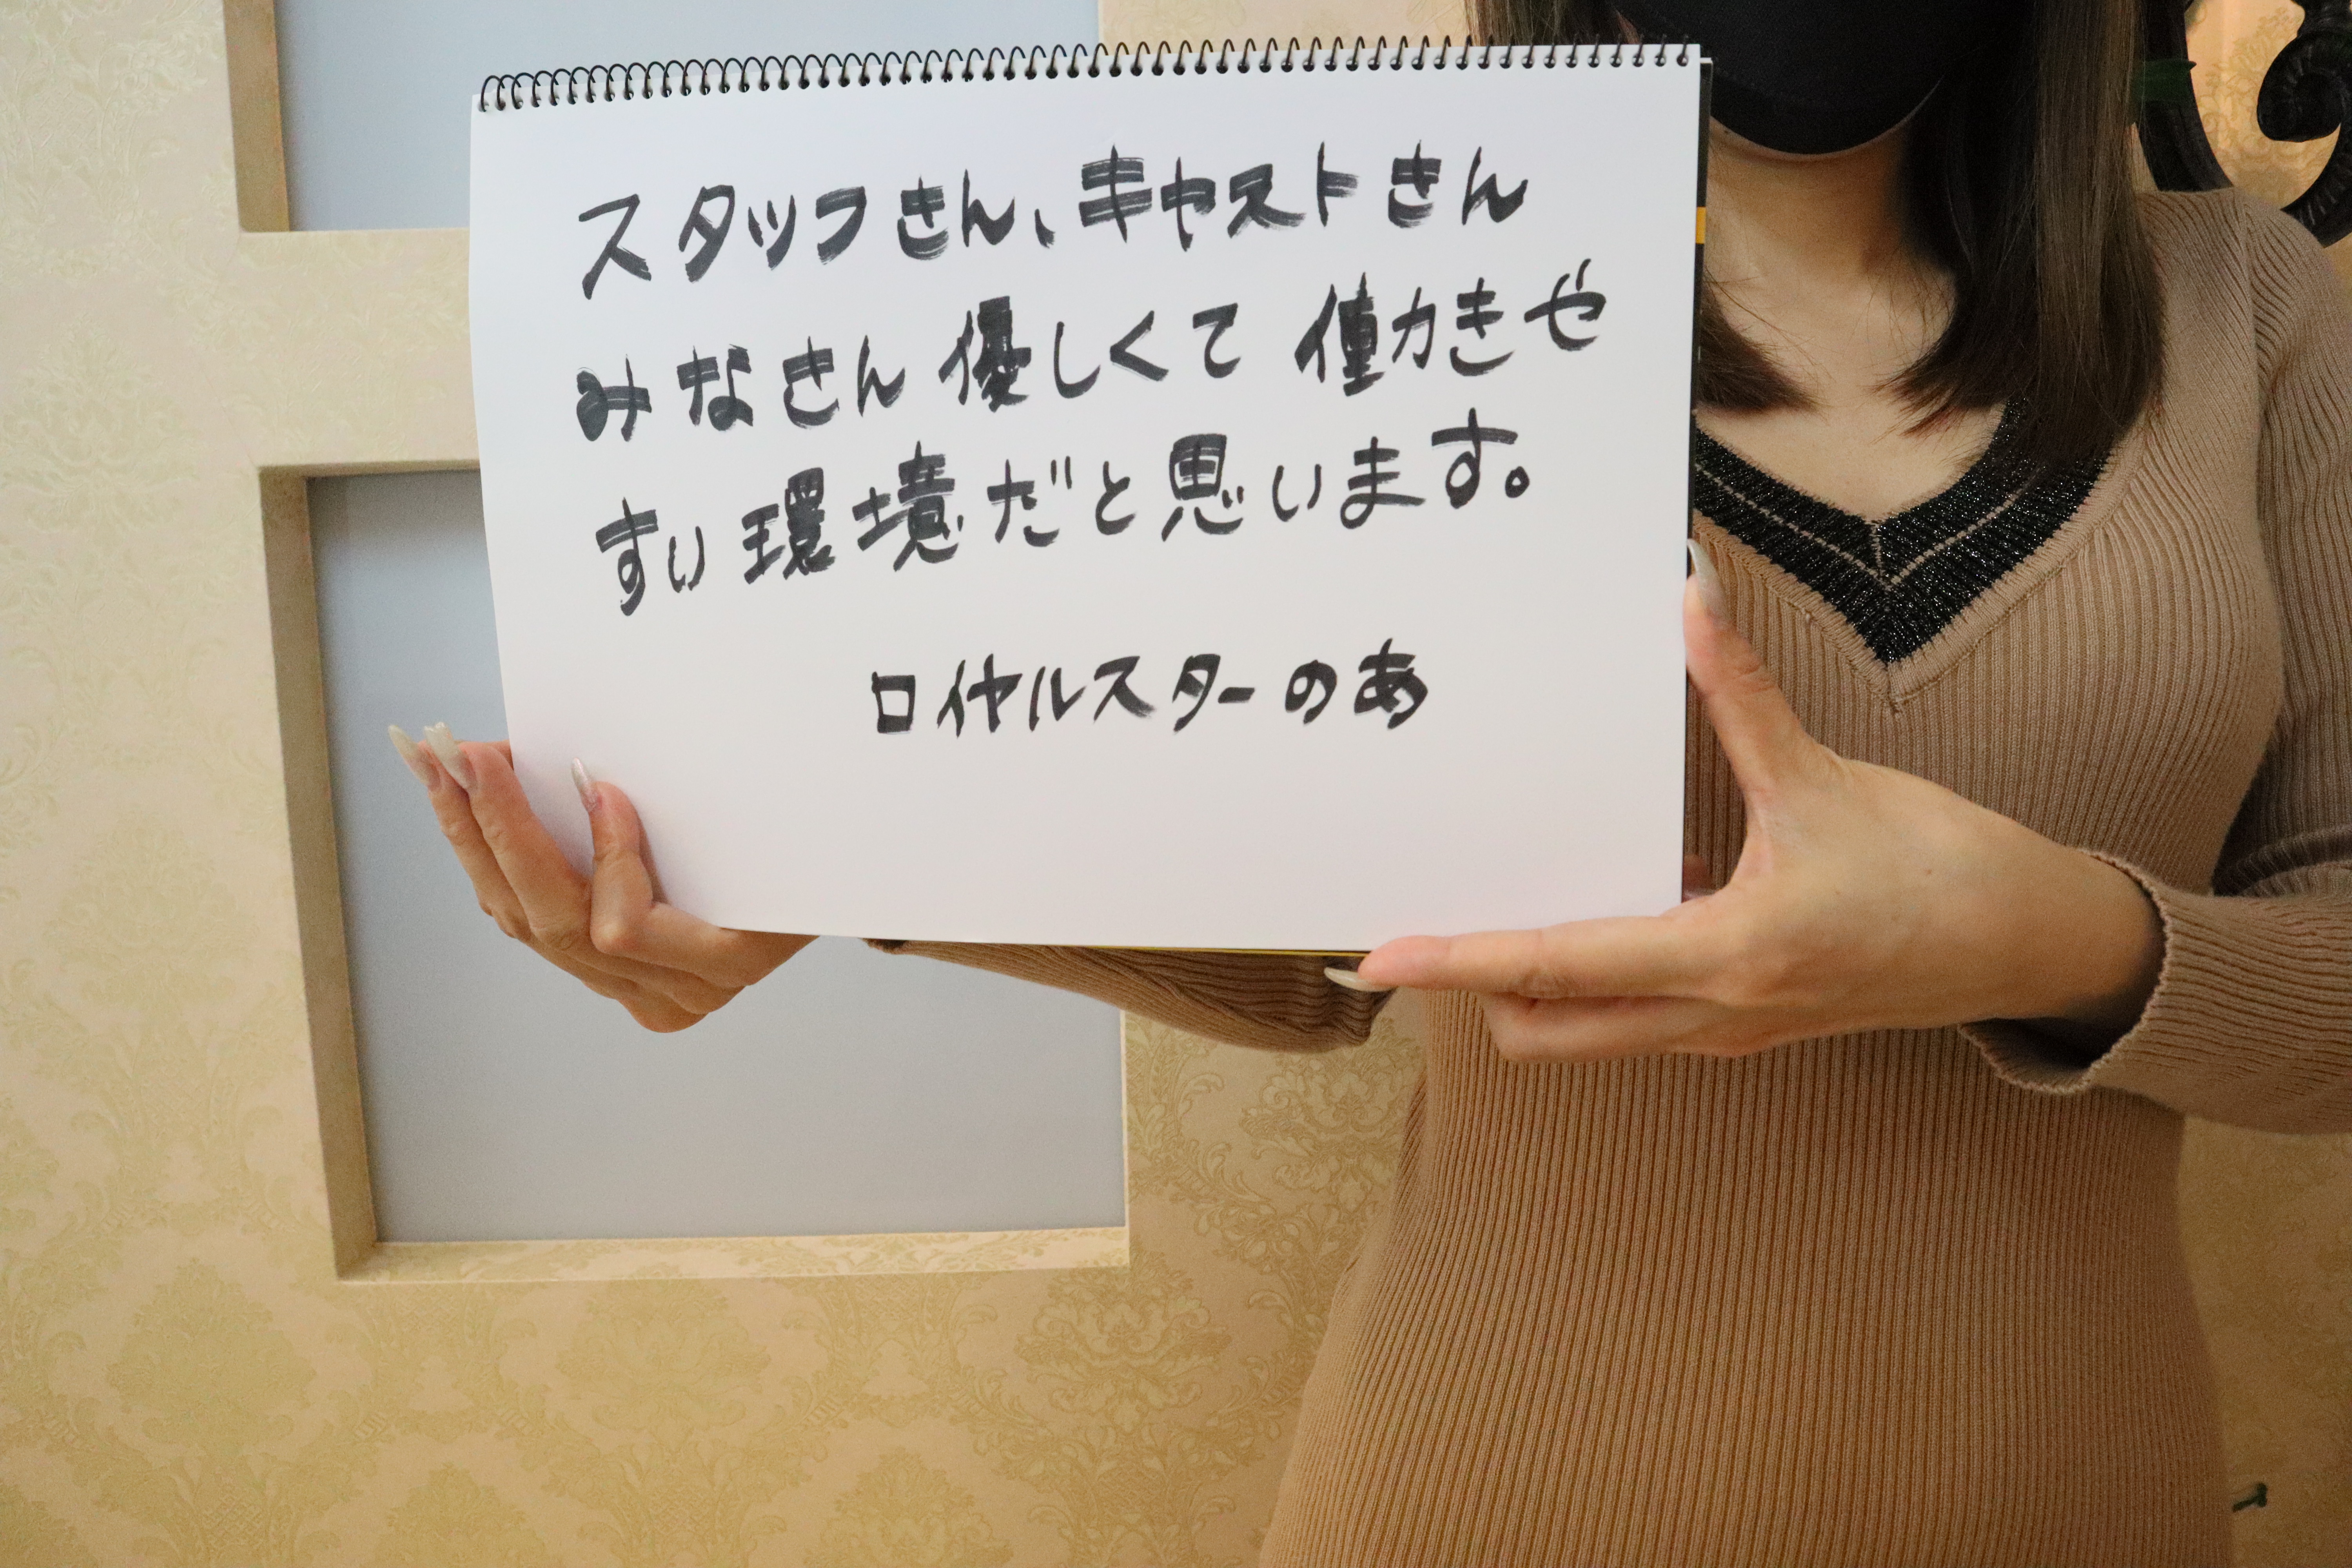 スタッフさん、キャストさん
みなさん優しくて働きや
すい環境だと思います。
ロイヤルスターのあ